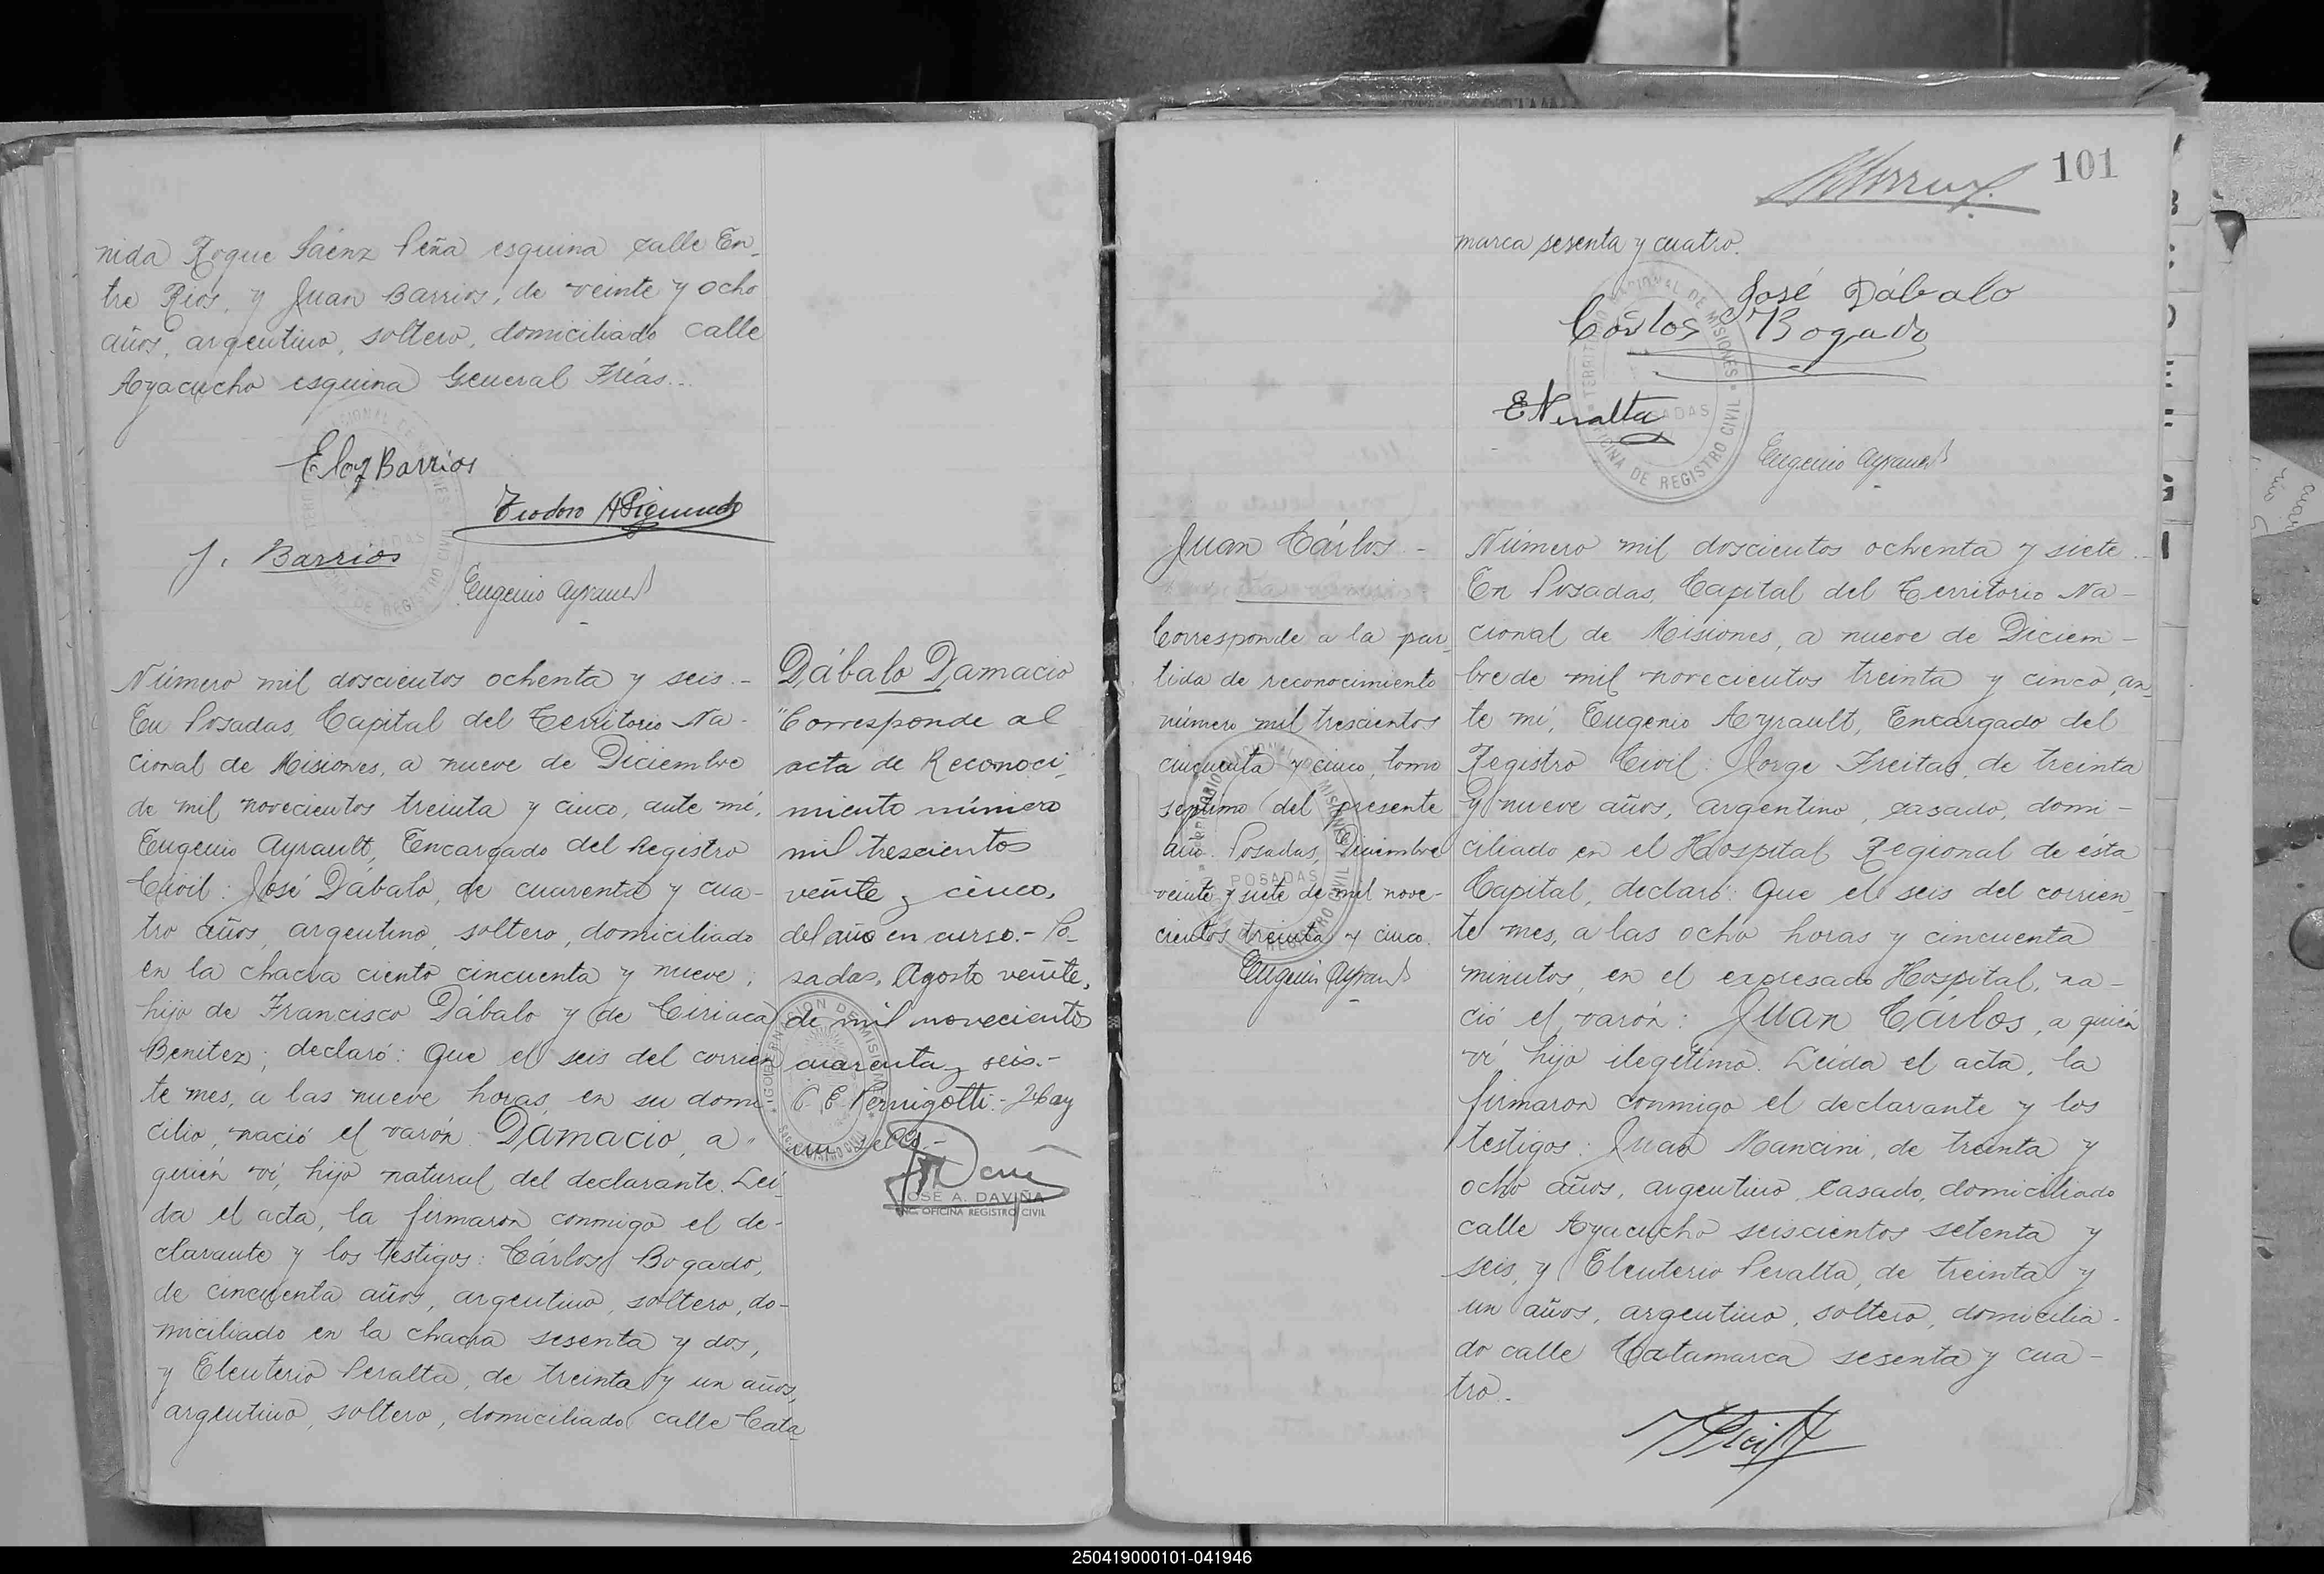 nida Roque Sáenz Peña esquina calle En-
tre Ríos, y Juan Barrios, de veinte y ocho
años, argentino, soltero, domiciliado calle
Ayacucho esquina General Frías..
Eloy Barrios
Teodoro
J. Barrios
Eugenio Ayrault
Número mil doscientos ochenta y seis.-
En Posadas, Capital del Territorio Na-
cional de Misiones, a nueve de Diciembre
de mil novecientos treinta y cinco, ante mí,
Eugenio Ayrault, Encargado del Registro
Civil: José Dábalo, de cuarenta y cua-
tro años, argentino, soltero, domiciliado
en la chacra ciento cincuenta y nueve;
hijo de Francisco Dábalo y de Ciriaca
Benitez; declaró: Que el seis del corrien
te mes, a las nueve horas, en su domi
cilio, nació el varón: Damacio, a
quién ví, hijo natural del declarante. Lei-
da el acta, la firmaron conmigo el de-
clarante y los testigos: Cárlos Bogado,
de cincuenta años, argentino, soltero, do-
miciliado en la chacra sesenta y dos,
y Eleuterio Peralta, de treinta y un años,
argentino, soltero, domiciliado calle Cata-
Dábalo Damacio
"Corresponde al
acta de Reconoci-
miento número
mil trescientos
veinte y cinco,
del año en curso.- Po-
sadas, Agosto veinte,
de mil novecientos
cuarenta y seis.-
C. E. Pernigotti.- Hay
un sello.-
JOSÉ A. DAVIÑA
ENC. OFICINA REGISTRO CIVIL
101
marca sesenta y cuatro.
José Dábalo
Cárlos Bogado
E Peralta
TERRITORIO NACIONAL DE MISIONES
POSADAS
OFICINA DE REGISTRO CIVIL
Eugenio Ayrault
Juan Cárlos -
Corresponde a la par-
tida de reconocimiento
número mil trescientos
cincuenta y cinco, tomo
séptimo del presente
año. Posadas, Diciembre
veinte y siete de mil nove-
cientos treinta y cinco.
Eugenio Ayrault
POSADAS
Número mil doscientos ochenta y siete.-
En Posadas, Capital del Territorio Na-
cional de Misiones, a nueve de Diciem-
bre de mil novecientos treinta y cinco, an-
te mí, Eugenio Ayrault, Encargado del
Registro Civil: Jorge Freitas, de treinta
y nueve años, argentino, casado, domi-
ciliado en el Hospital Regional de ésta
Capital, declaró: Que el seis del corrien-
te mes, a las ocho horas y cincuenta
minutos, en el expresado Hospital, na-
ció el varón: Juan Cárlos, a quién
ví, hijo ilegítimo. Leída el acta, la
firmaron conmigo el declarante y los
testigos: Juan Mancini, de treinta y
ocho años, argentino, casado, domiciliado
calle Ayacucho seiscientos setenta y
seis, y Eleuterio Peralta, de treinta y
un años, argentino, soltero, domicilia-
do calle Catamarca sesenta y cua-
tro.-
250419000101-041946